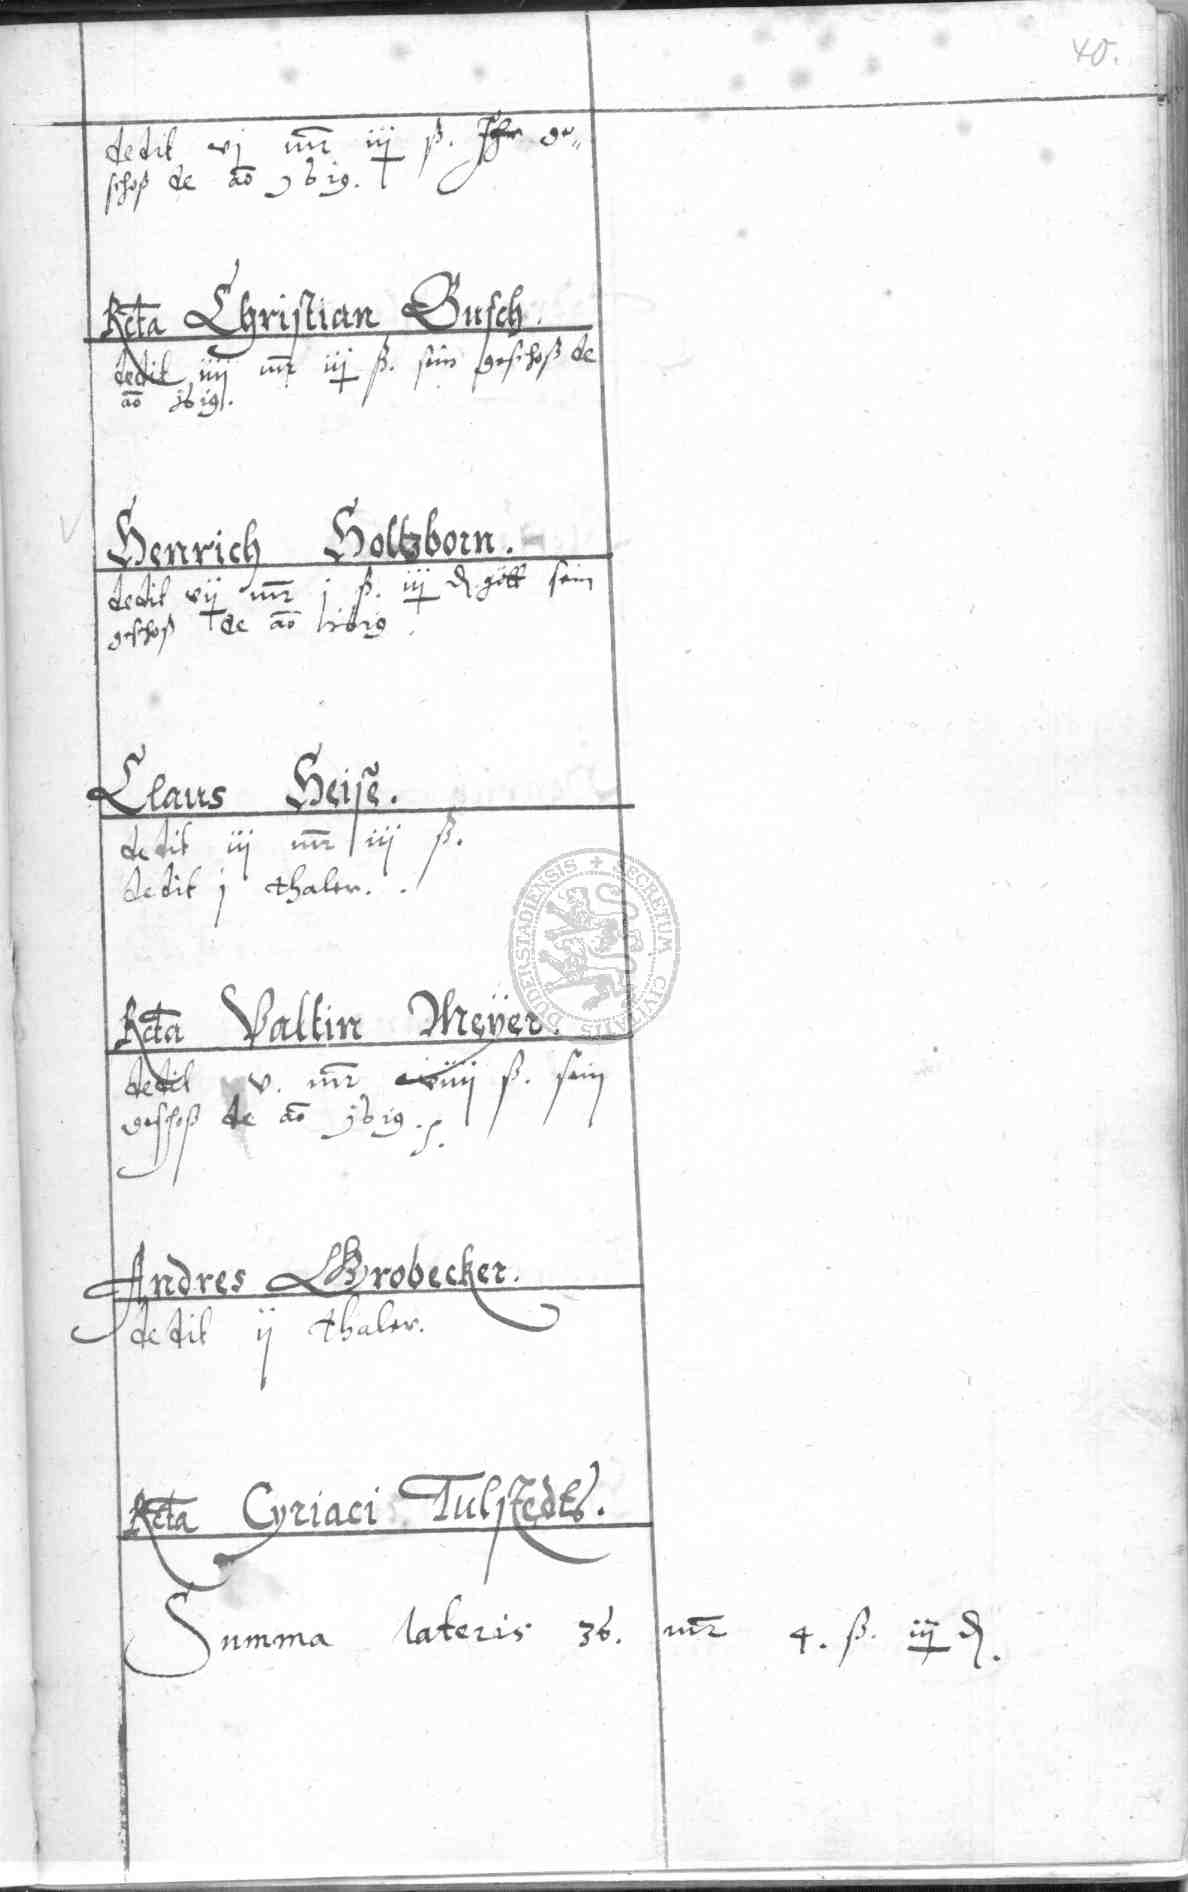 40.
dedit vj mr iij ß. Ihr ge„
schoß de ao 1619.
Rcta Christian Busch.
dedit iiij mr iij ß. sein geschoß de
ao 1619.
Henrich Holtzborn.
dedit vij mr j ß. iij d gött sein
geschoß de ao 1619
Claus Heise.
dedit iij mr iij ß.
dedit j thaler.
Rcta Valtin Meÿer.
dedit v. mr viiij ß. sein
geschoß de ao 1619.
Andres Grobecker.
dedit ij thaler.
Rcta Cyriaci Tulstedts.
Summa lateris 36. mr 4. ß. iij d.
SECRETUM CIVITATIS DUDERSTADIENSIS